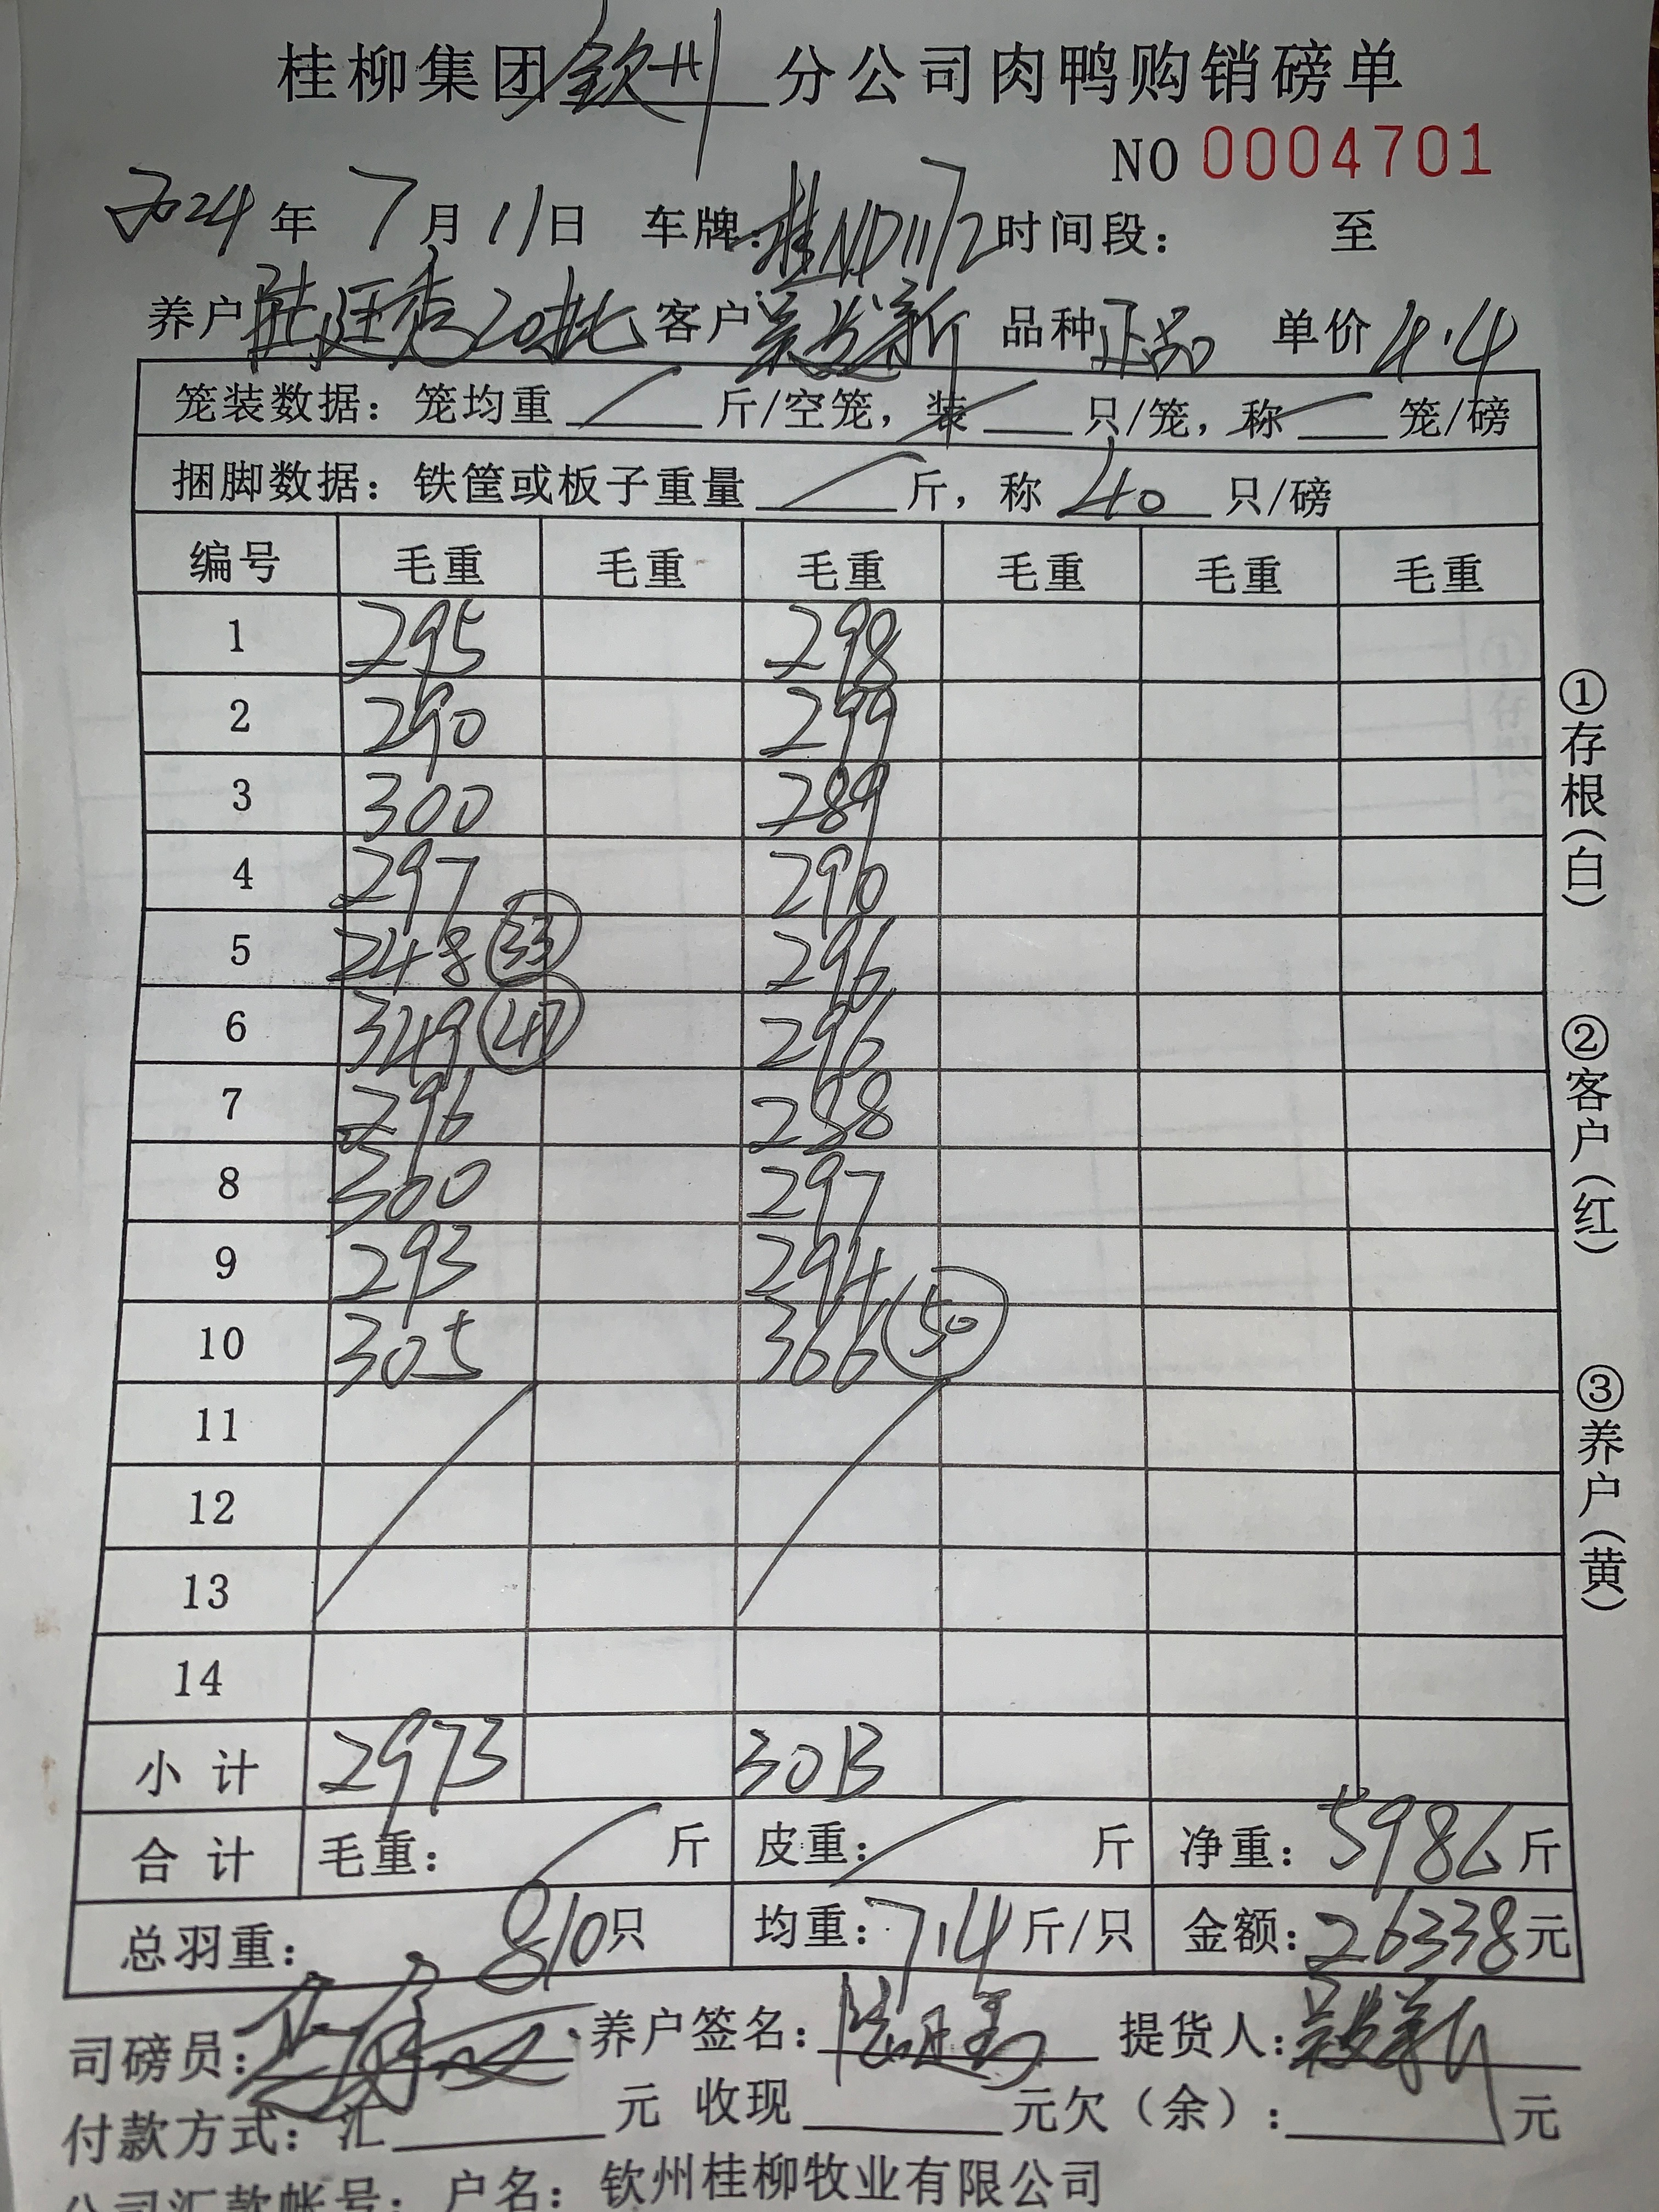 桂柳集团钦州分公司肉鸭购销磅单
NO 0004701
2024年 7月 11日 车牌:桂ND1172 时间段: 至
养户 陆廷秀20批 客户 新 品种 正品 单价 4.4
笼装数据: 笼均重 斤/空笼, 装 只/笼, 称 笼/磅
捆脚数据: 铁筐或板子重量 斤, 称 40 只/磅
编号 毛重 毛重 毛重 毛重 毛重 毛重
1 295 298
2 290 299
3 300 289
4 297 290
5 248 33 296
6 349 47 296
7 296 288
8 300 297
9 293 294
10 305 366 50
11
12
13
14
小计 2973 3013
合计 毛重: 斤 皮重: 斤 净重: 5986 斤
总羽重: 810只 均重: 7.4 斤/只 金额: 26338 元
司磅员: 养户签名: 提货人:
付款方式: 汇 元 收现 元欠(余): 元
公司汇款帐号: 户名: 钦州桂柳牧业有限公司
①存根(白)
②客户(红)
③养户(黄)